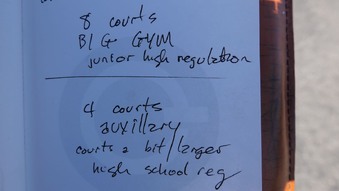 8 courts
BIG GYM
junior high regulation
4 courts
auxillary
courts a bit/larger
high school reg